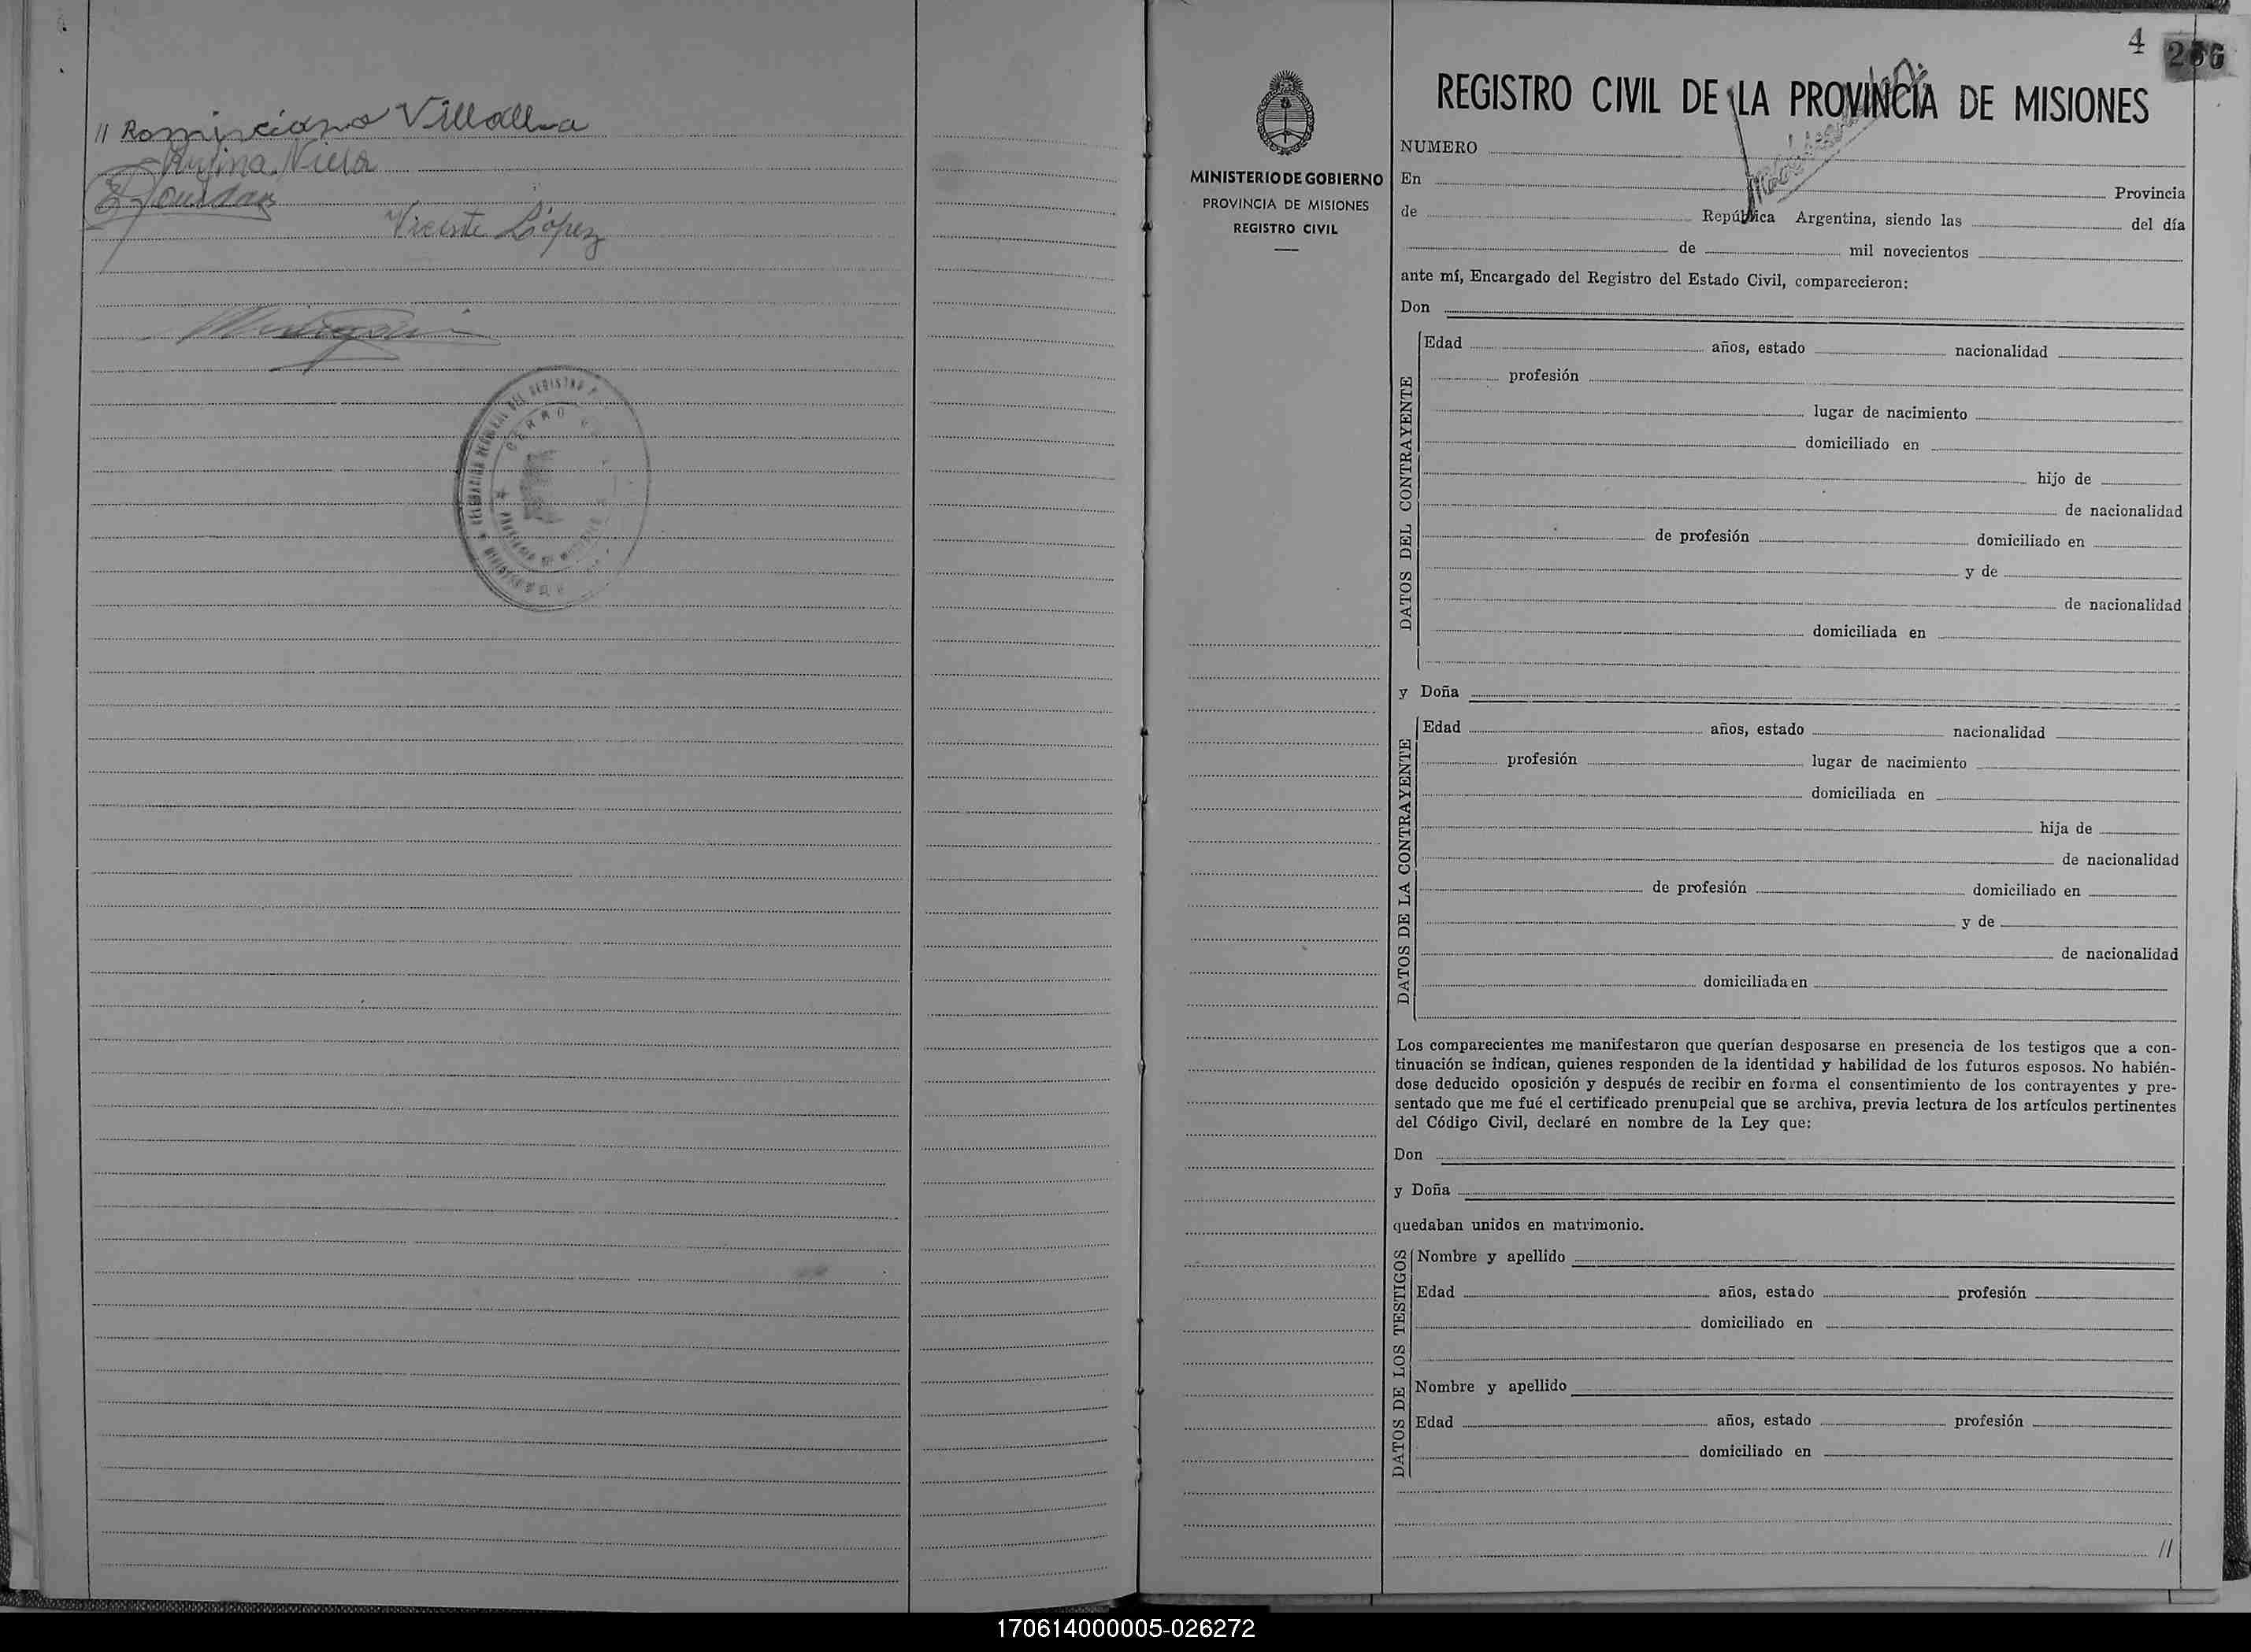 // Romirciano Villalba
Rufina Viera
Vicente López
DELEGACION DEL REGISTRO
CERRO
PROVINCIA DE
4
REGISTRO CIVIL DE LA PROVINCIA DE MISIONES
MINISTERIO DE GOBIERNO
PROVINCIA DE MISIONES
REGISTRO CIVIL
NUMERO
En Provincia
de República Argentina, siendo las del día
de mil novecientos
ante mí, Encargado del Registro del Estado Civil, comparecieron:
Don
DATOS DEL CONTRAYENTE
Edad años, estado nacionalidad
profesión
lugar de nacimiento
domiciliado en
hijo de
de nacionalidad
de profesión domiciliado en
y de
de nacionalidad
domiciliada en
y Doña
DATOS DE LA CONTRAYENTE
Edad años, estado nacionalidad
profesión lugar de nacimiento
domiciliada en
hija de
de nacionalidad
de profesión domiciliado en
y de
de nacionalidad
domiciliada en
Los comparecientes me manifestaron que querían desposarse en presencia de los testigos que a con-
tinuación se indican, quienes responden de la identidad y habilidad de los futuros esposos. No habién-
dose deducido oposición y después de recibir en forma el consentimiento de los contrayentes y pre-
sentado que me fué el certificado prenupcial que se archiva, previa lectura de los artículos pertinentes
del Código Civil, declaré en nombre de la Ley que:
Don
y Doña
quedaban unidos en matrimonio.
DATOS DE LOS TESTIGOS
Nombre y apellido
Edad años, estado profesión
domiciliado en
Nombre y apellido
Edad años, estado profesión
domiciliado en
//
170614000005-026272